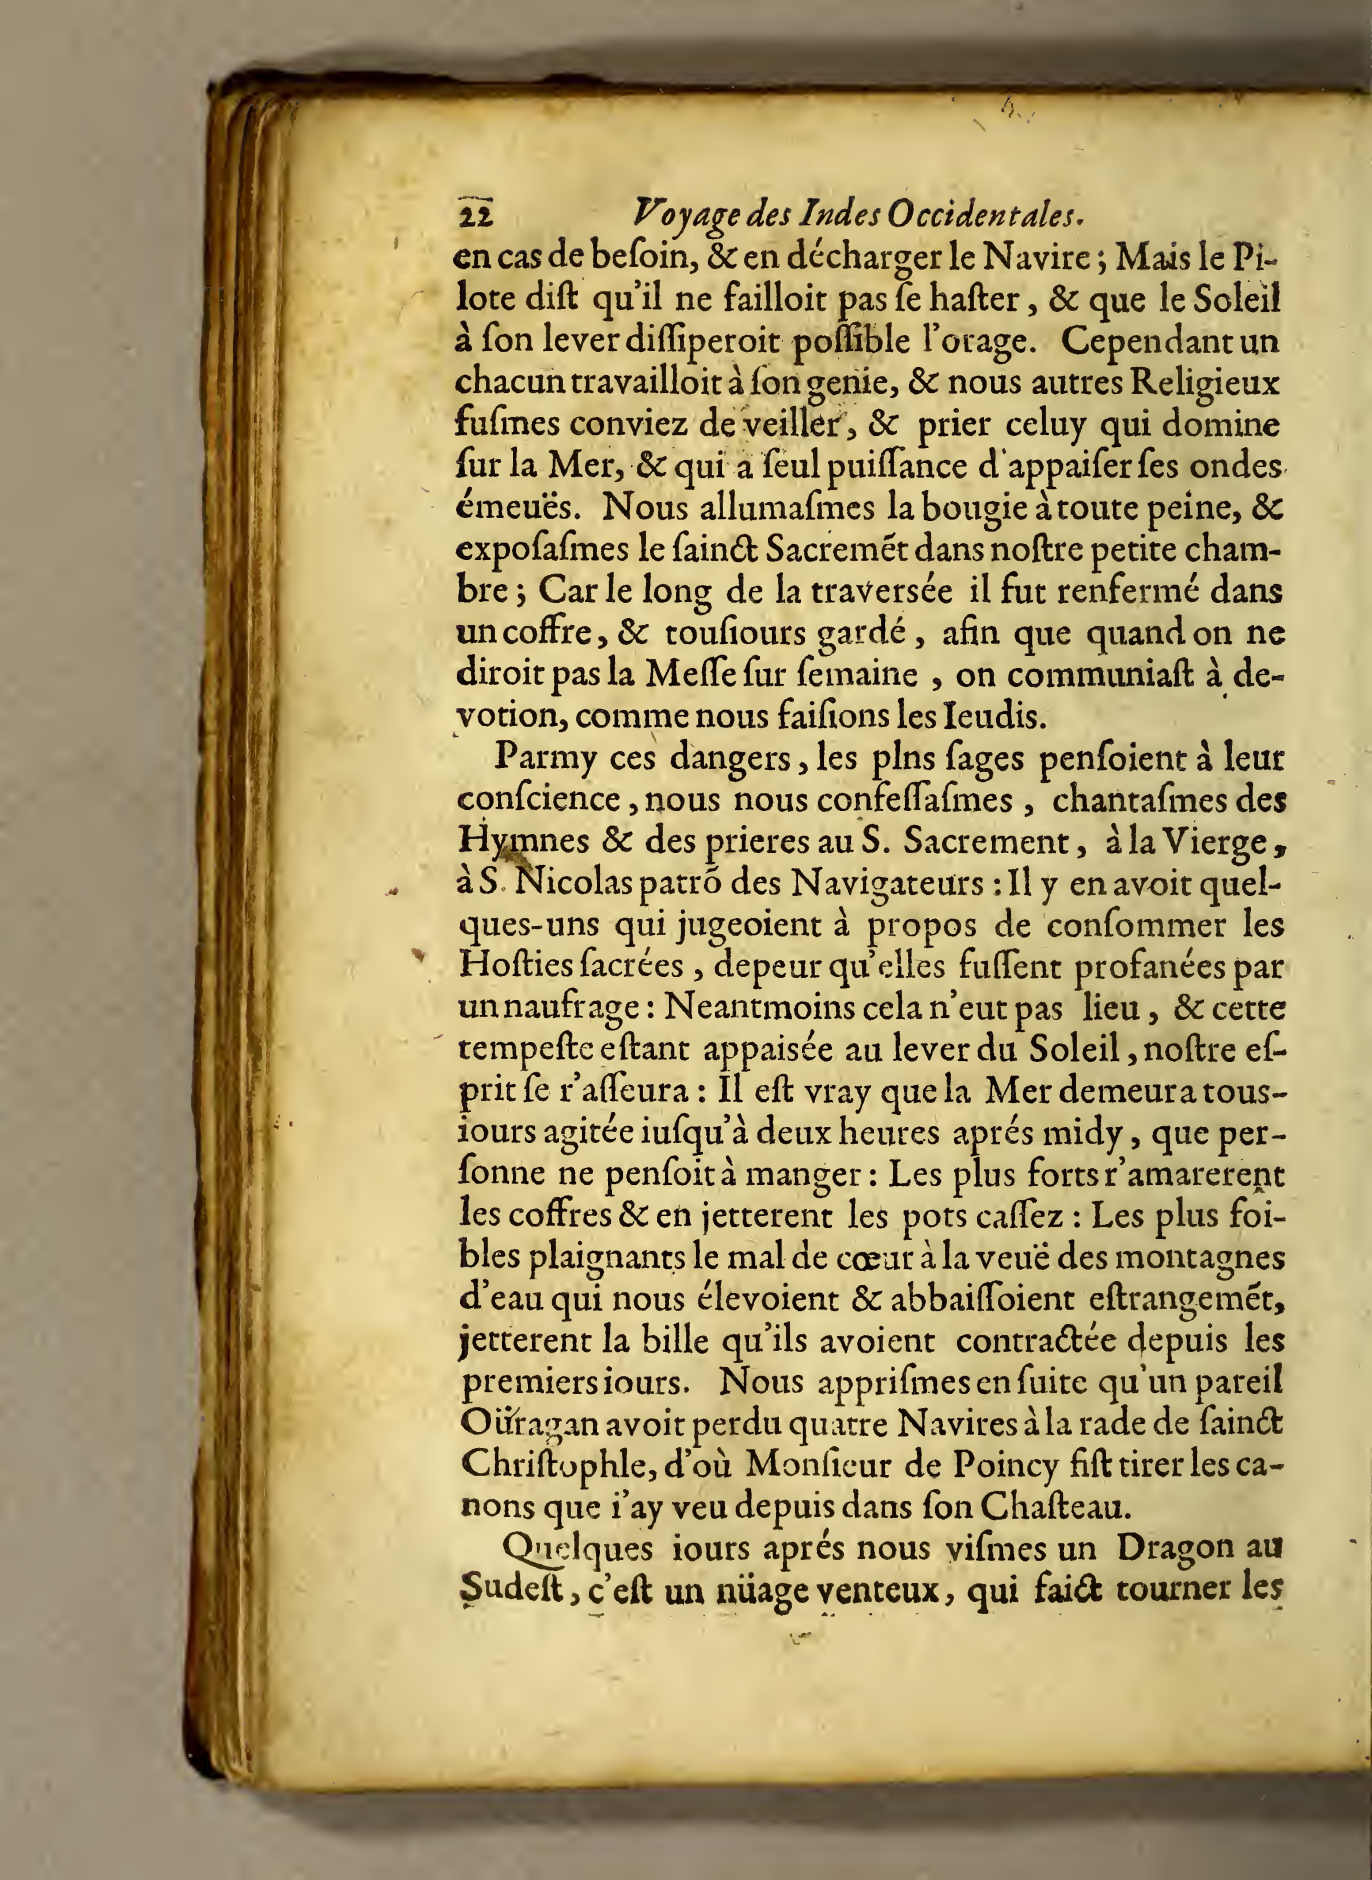 22 Voyage des Indes Occidentales.
en cas de beſoin, & en décharger le Navire ; Mais le Pi-
lote diſt qu'il ne failloit pas ſe haſter, & que le Soleil
à ſon lever diſſiperoit poſſible l'orage. Cependant un
chacun travailloit à ſon genie, & nous autres Religieux
fuſmes conviez de veiller, & prier celuy qui domine
ſur la Mer, & qui a ſeul puiſſance d'appaiſer ſes ondes
émeuës. Nous allumaſmes la bougie à toute peine, &
expoſaſmes le ſainct Sacremẽt dans noſtre petite cham-
bre ; Car le long de la traversée il fut renfermé dans
un coffre, & touſiours gardé, afin que quand on ne
diroit pas la Meſſe ſur ſemaine, on communiaſt à de-
votion, comme nous faiſions les Ieudis.
Parmy ces dangers, les plns ſages penſoient à leur
conſcience, nous nous confeſſaſmes, chantaſmes des
Hymnes & des prieres au S. Sacrement, à la Vierge,
à S. Nicolas patrõ des Navigateurs : Il y en avoit quel-
ques-uns qui jugeoient à propos de conſommer les
Hoſties ſacrées, depeur qu'elles fuſſent profanées par
un naufrage : Neantmoins cela n'eut pas lieu, & cette
tempeſte eſtant appaisée au lever du Soleil, noſtre eſ-
prit ſe r'aſſeura : Il eſt vray que la Mer demeura tous-
iours agitée iuſqu'à deux heures aprés midy, que per-
ſonne ne penſoit à manger : Les plus forts r'amarerent
les coffres & en jetterent les pots caſſez : Les plus foi-
bles plaignants le mal de cœur à la veuë des montagnes
d'eau qui nous élevoient & abbaiſſoient eſtrangemẽt,
jetterent la bille qu'ils avoient contractée depuis les
premiers iours. Nous appriſmes en ſuite qu'un pareil
Oüragan avoit perdu quatre Navires à la rade de ſainct
Chriſtophle, d'où Monſieur de Poincy fiſt tirer les ca-
nons que i'ay veu depuis dans ſon Chaſteau.
Quelques iours aprés nous viſmes un Dragon au
Sudeſt, c'eſt un nüage venteux, qui faict tourner les